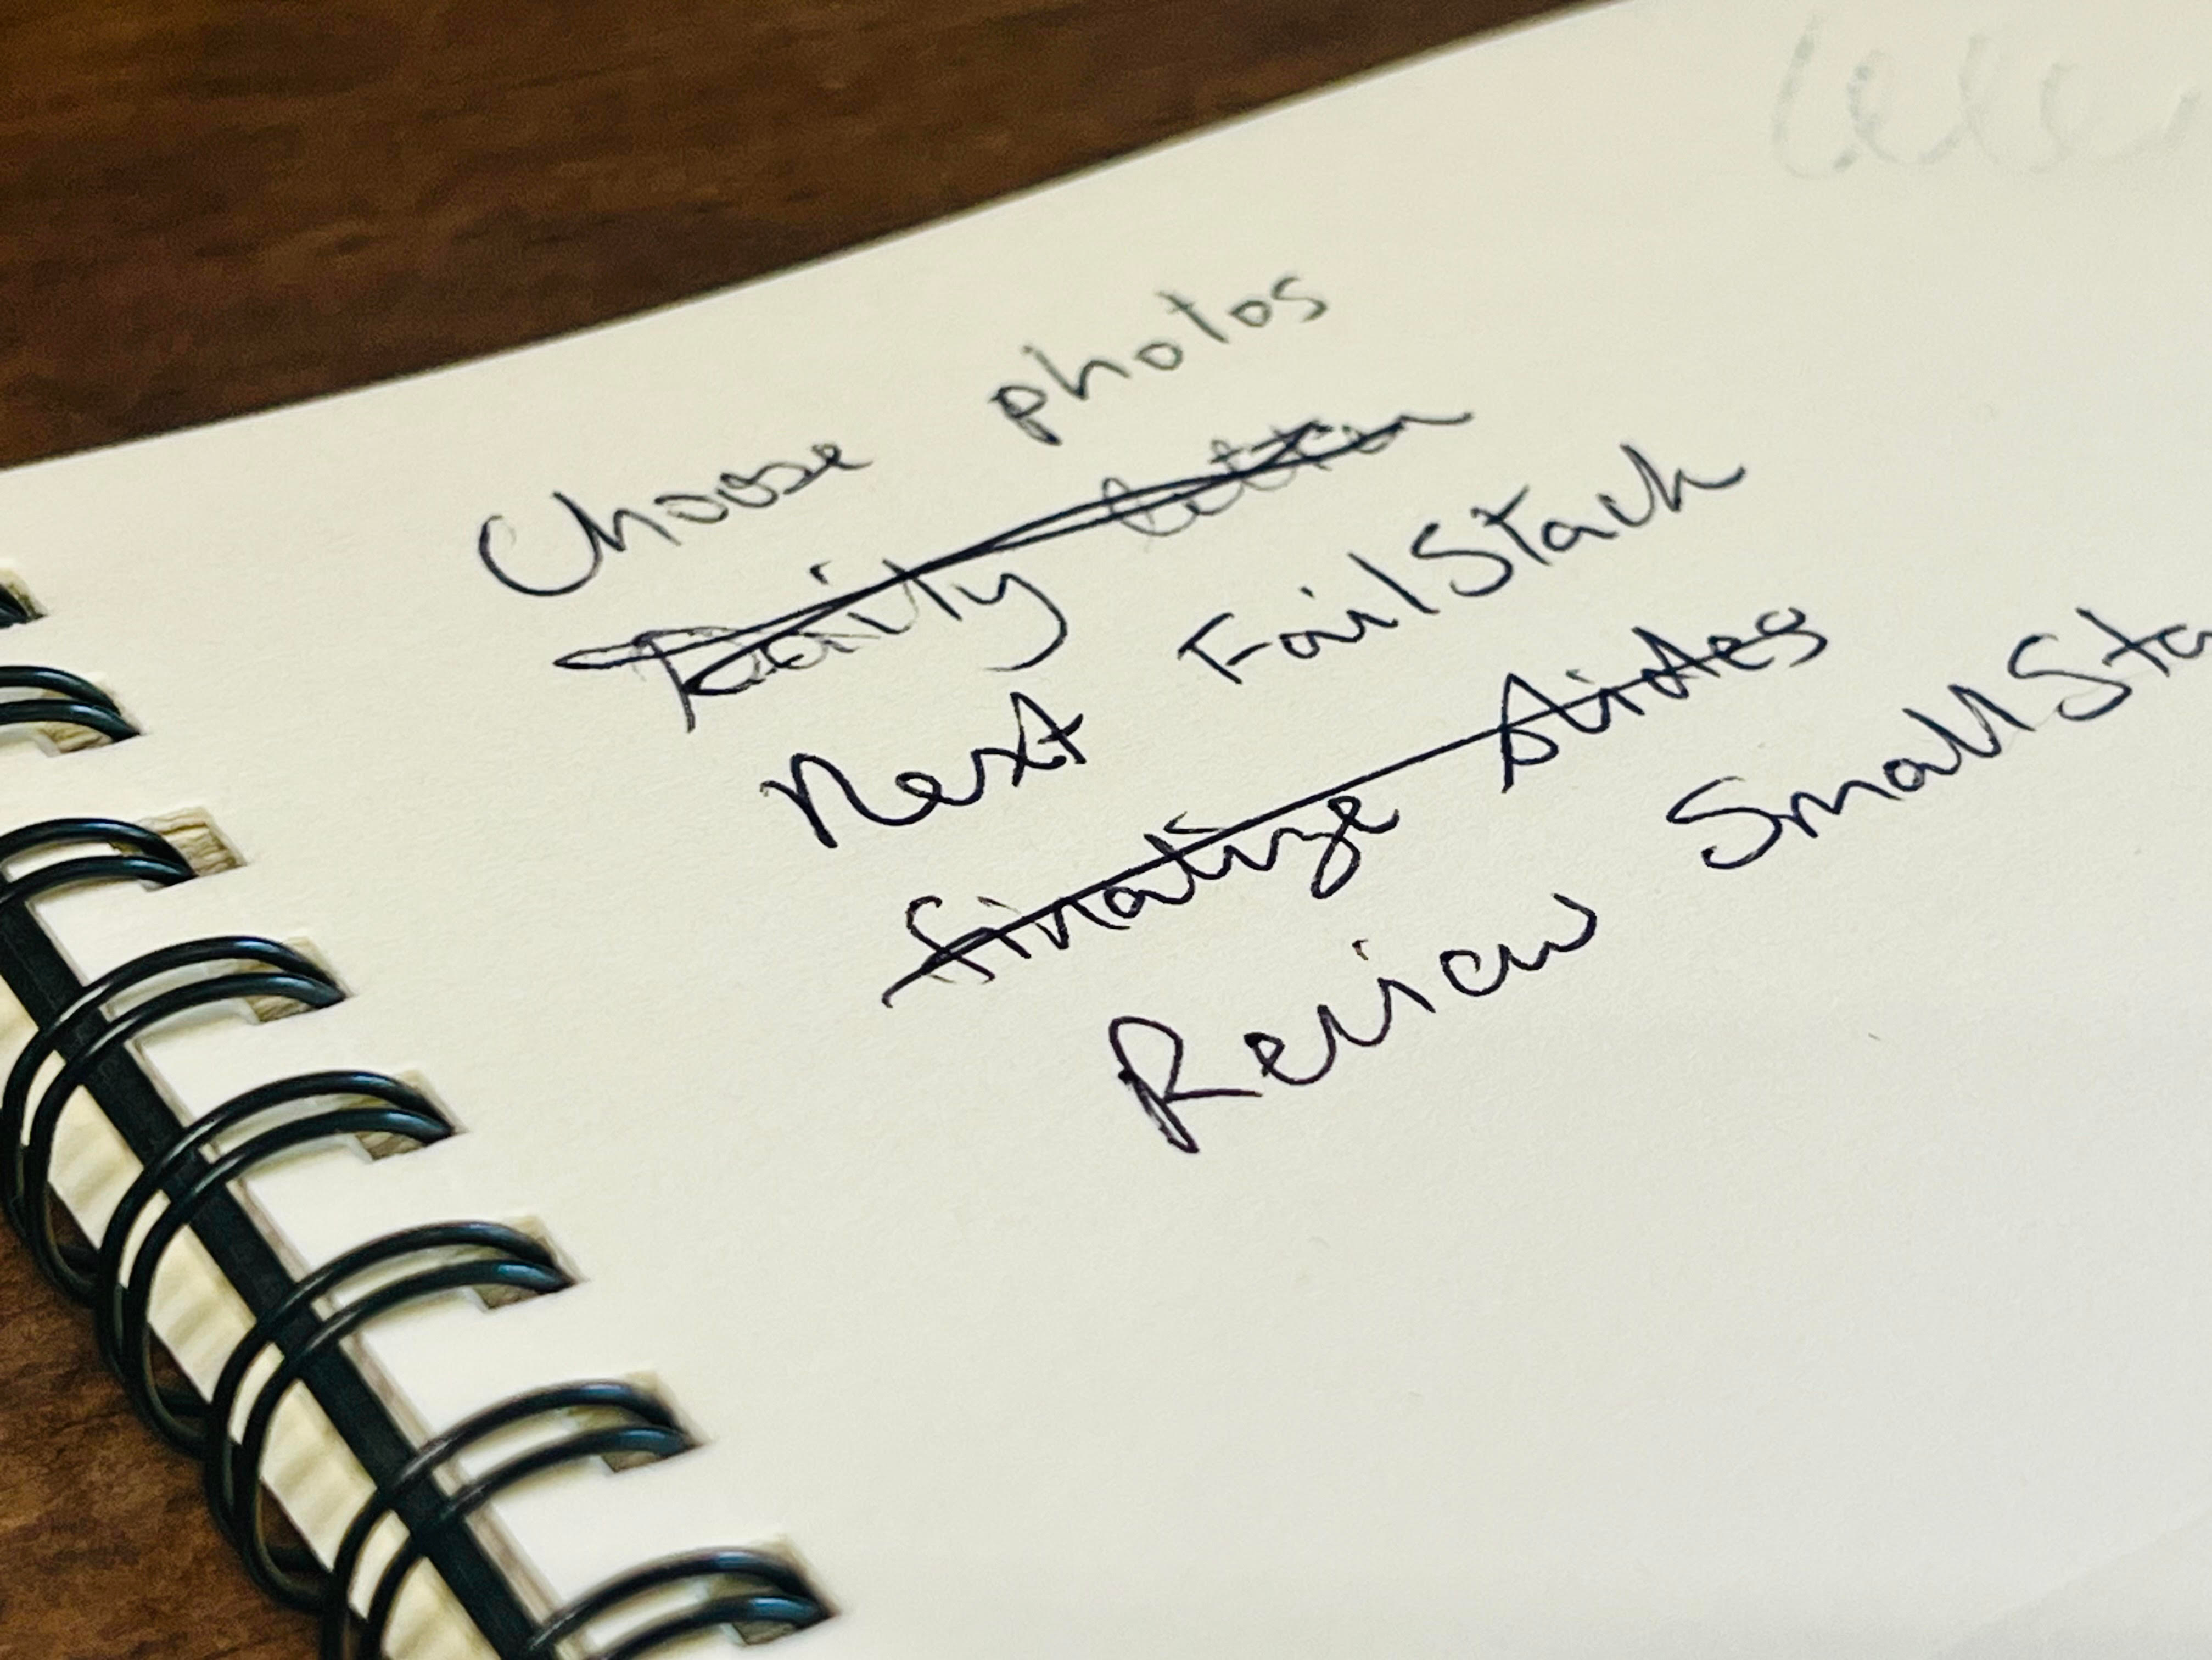 Choose photos
Daily letter
Next FailStack
finalize slides
Review SmallSta